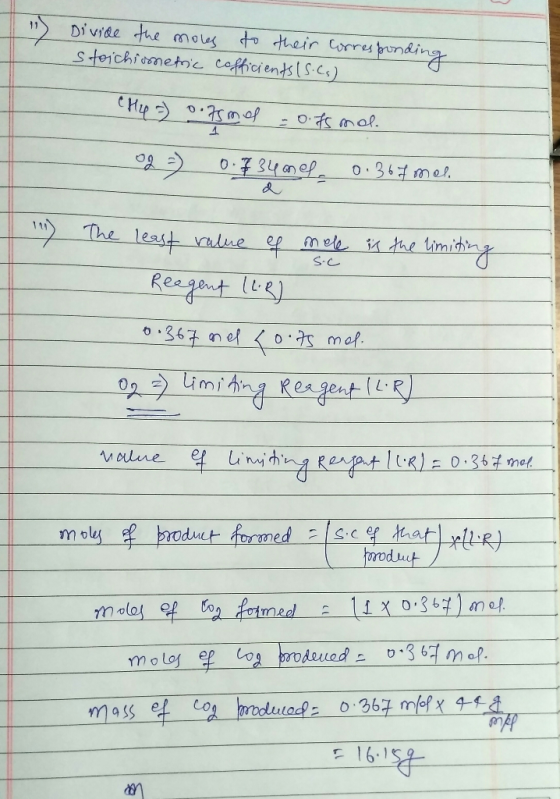 ii) Divide the moles to their corresponding
stoichiometric cofficients (S.Cs)
CH4 => 0.75 mol / 1 = 0.75 mol.
O2 => 0.734 mol / 2 = 0.367 mol.
iii) The least value of mole / S.C is the limiting
Reagent (L.R)
0.367 mol < 0.75 mol.
O2 => Limiting Reagent (L.R)
value of Limiting Reagent (L.R) = 0.367 mol.
moles of product formed = (S.C of that product) x (L.R)
moles of CO2 formed = (1 x 0.367) mol.
moles of CO2 produced = 0.367 mol.
Mass of CO2 produced = 0.367 mol x 44 g/mol
= 16.15g